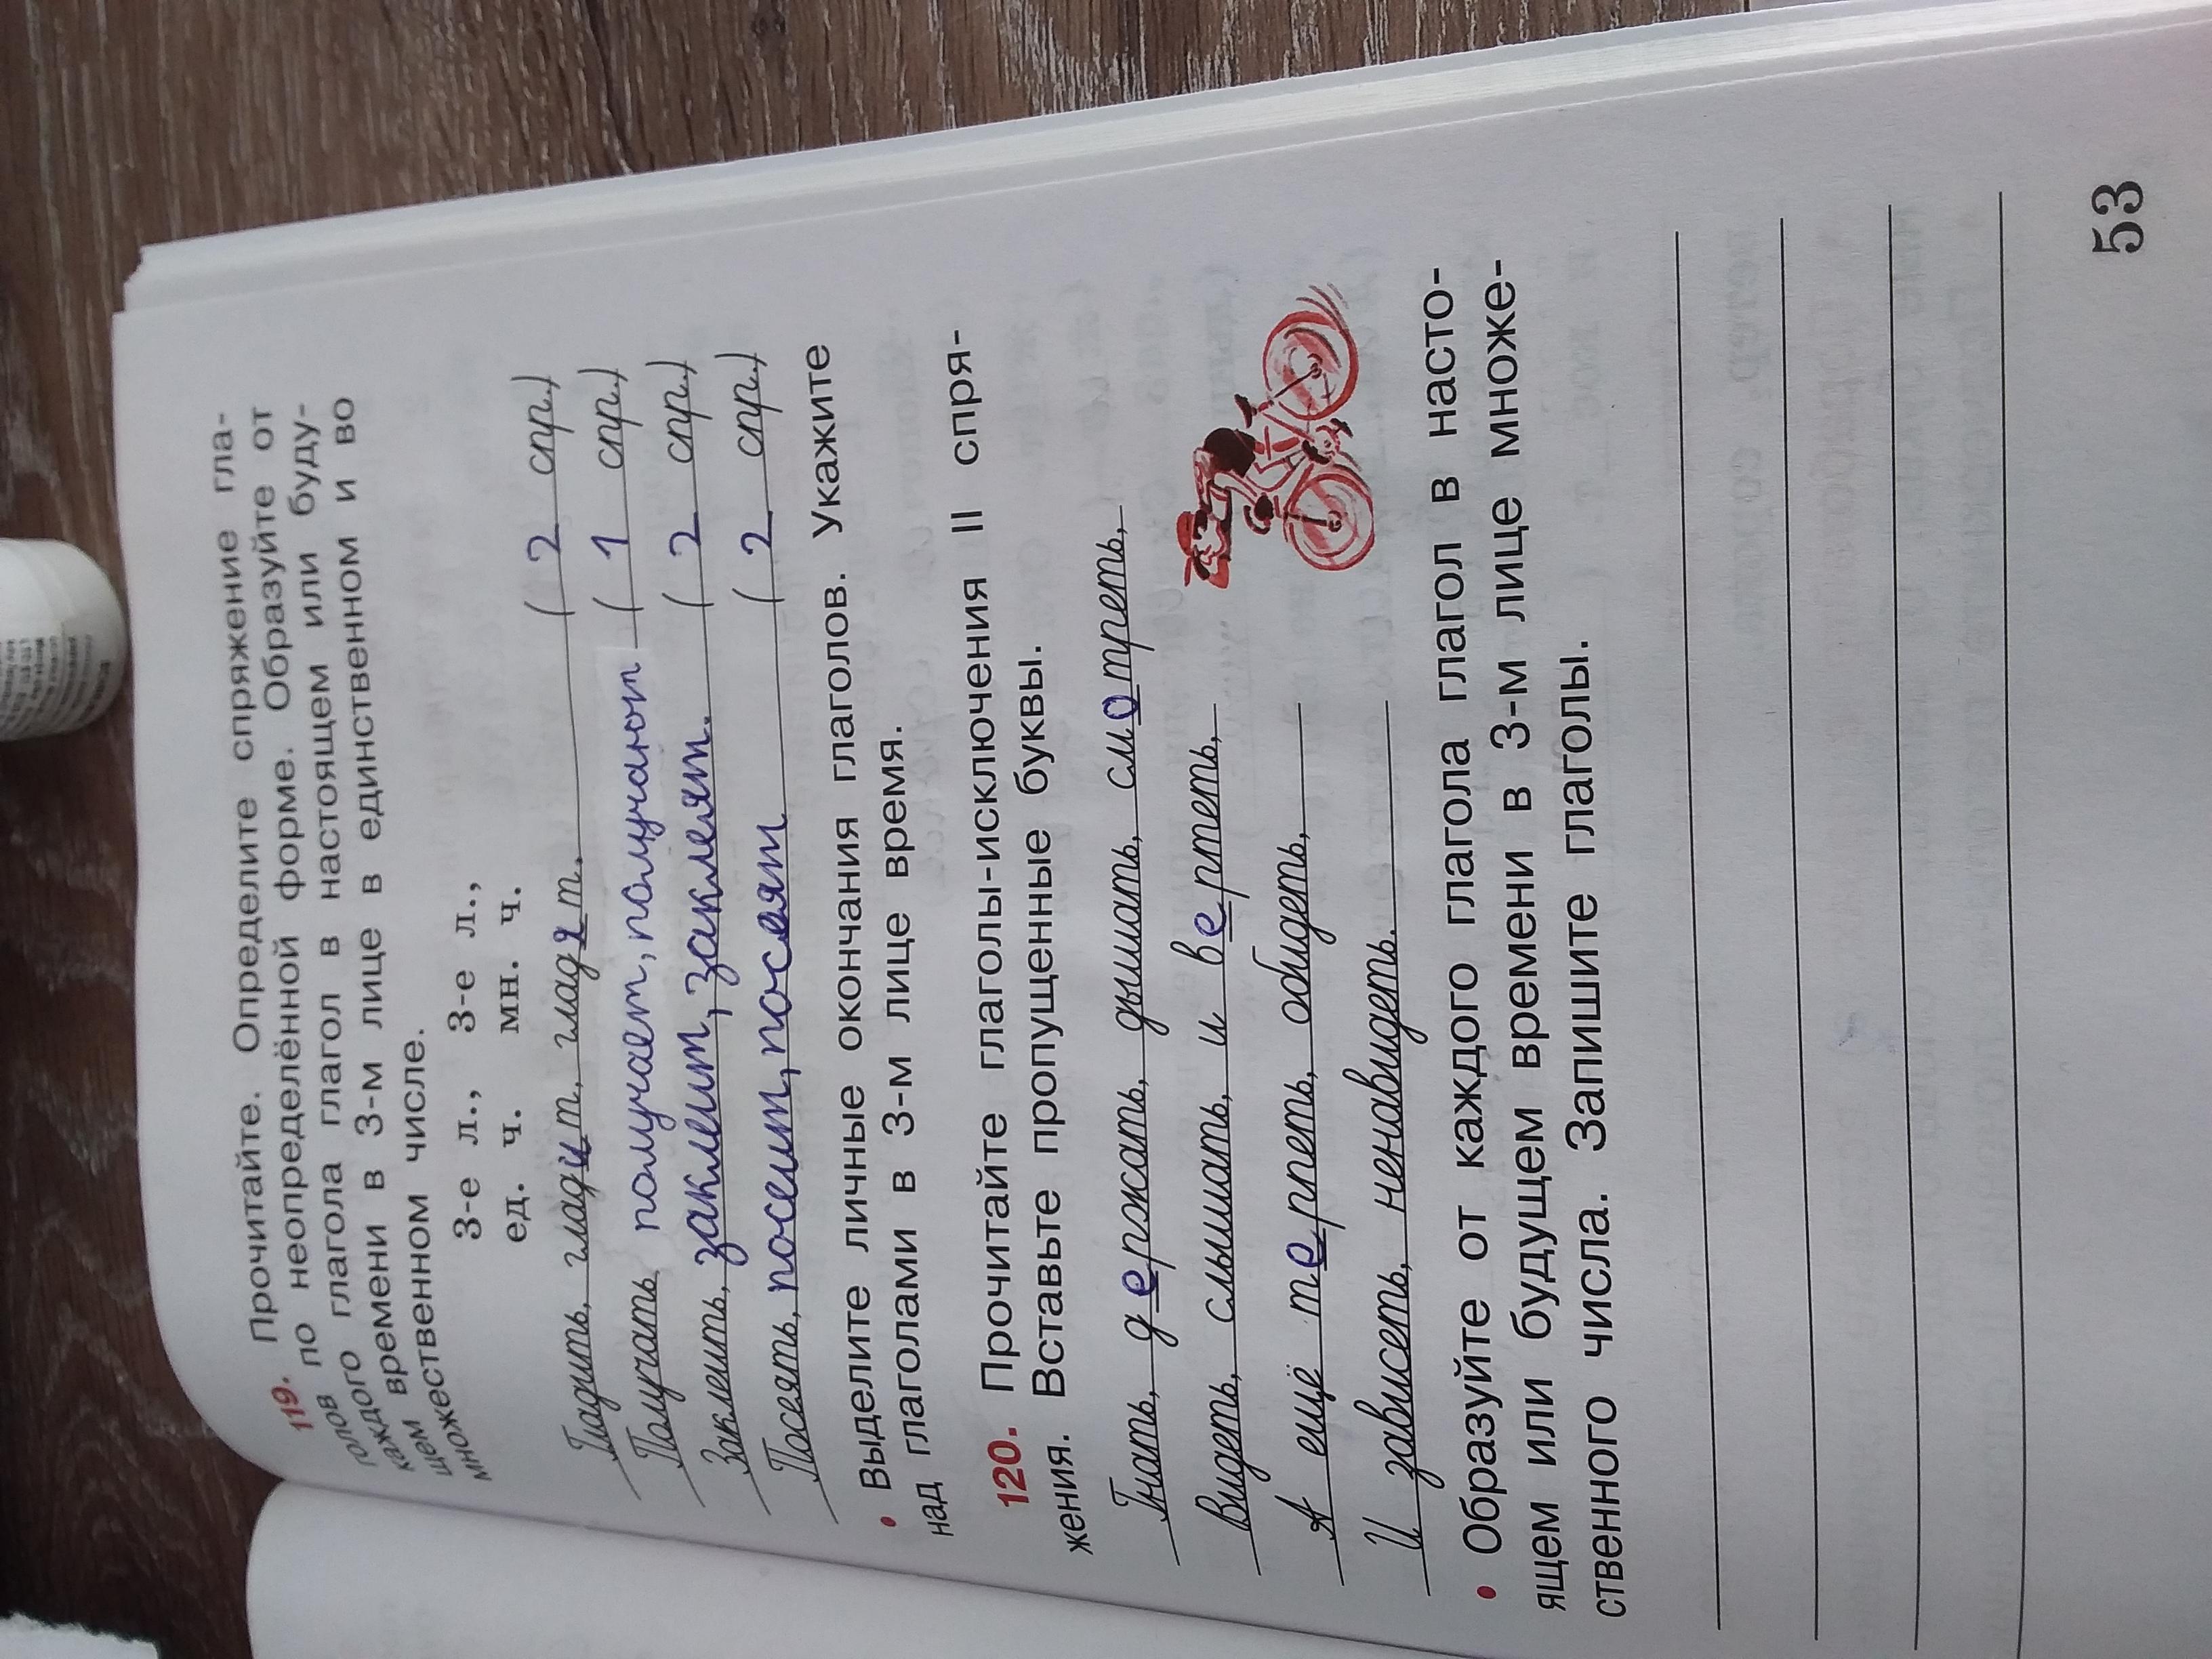 119. Прочитайте. Определите спряжение гла-
голов по неопределённой форме. Образуйте от
каждого глагола глагол в настоящем или буду-
щем времени в 3-м лице в единственном и во
множественном числе.
3-е л., 3-е л.,
ед. ч. мн. ч.
Гладить, гладит, гладят. (2 спр.)
Получать, получает, получают (1 спр.)
Заклеить, заклеит, заклеят. (2 спр.)
Посеять, посеит, посеят (2 спр.)
• Выделите личные окончания глаголов. Укажите
над глаголами в 3-м лице время.
120. Прочитайте глаголы-исключения II спря-
жения. Вставьте пропущенные буквы.
Гнать, держать, дышать, смотреть,
Видеть, слышать, и вертеть,
А ещё терпеть, обидеть,
И зависеть, ненавидеть.
• Образуйте от каждого глагола глагол в насто-
ящем или будущем времени в 3-м лице множе-
ственного числа. Запишите глаголы.
53